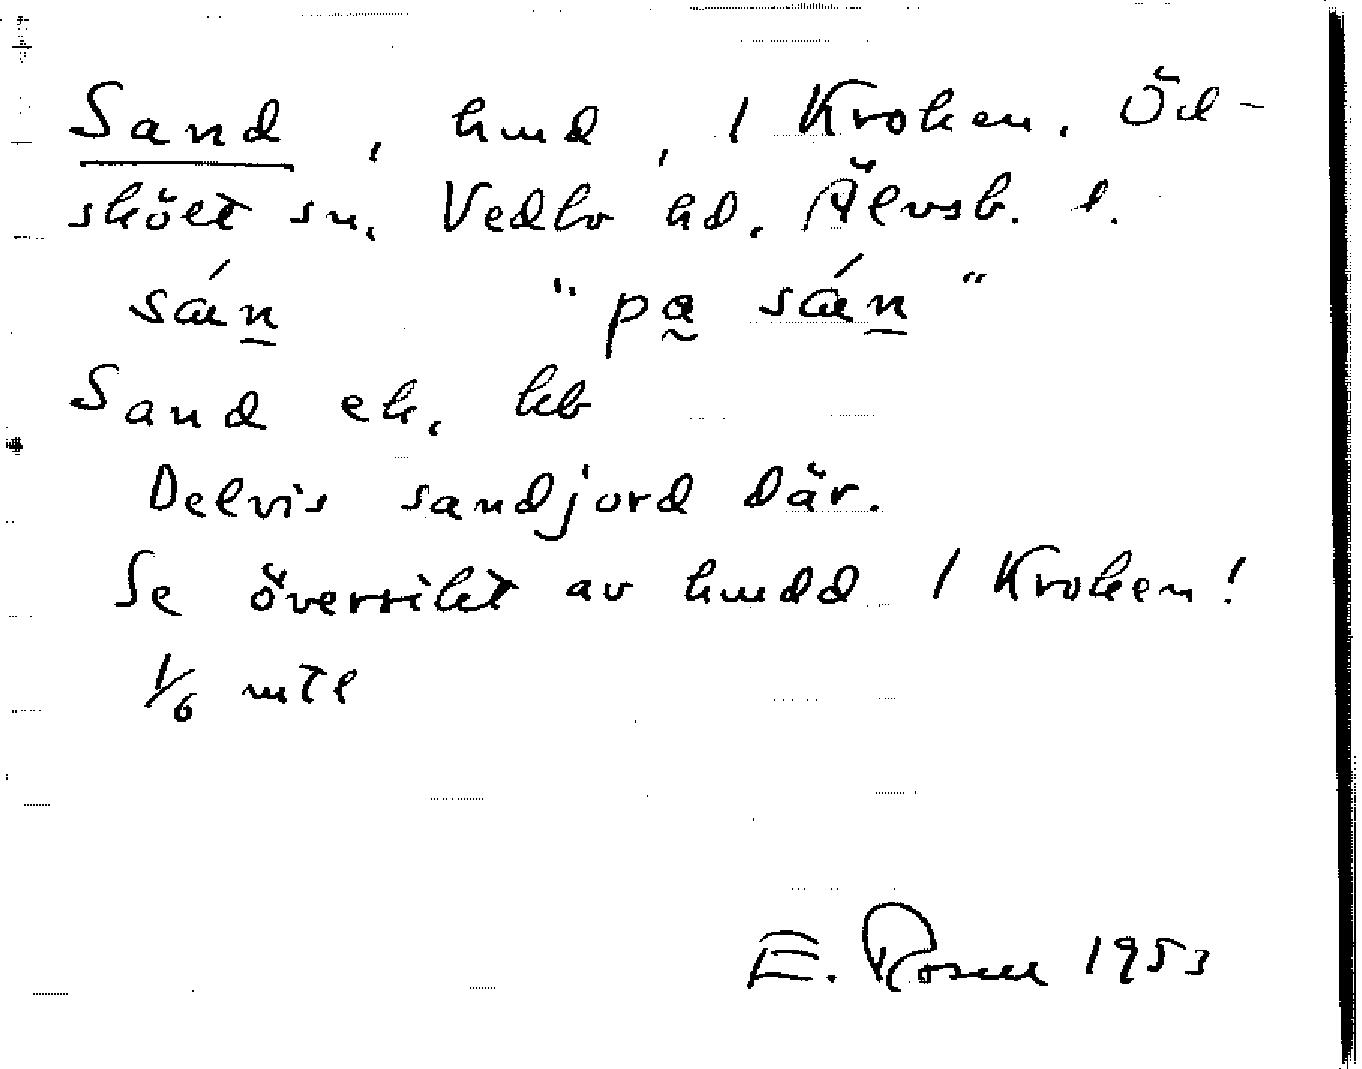 Sand, hmd, 1 Kroken. Öd-
skölt sn. Vedbo hd. Älvsb. l.
sán "pa sán"
Sand ek. kb
Delvis sandjord där.
Se översikt av hmdd 1 Kroken!
1/6 mtl
E. Rosell 1953